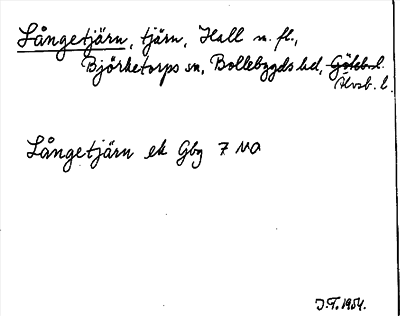 Långetjärn, tjärn, Hall m. fl.,
Björketorps sn, Bollebygds hd, Göteb. l.
Älvsb. l.
Långetjärn ek Gbg 7 NO
J.F. 1954.